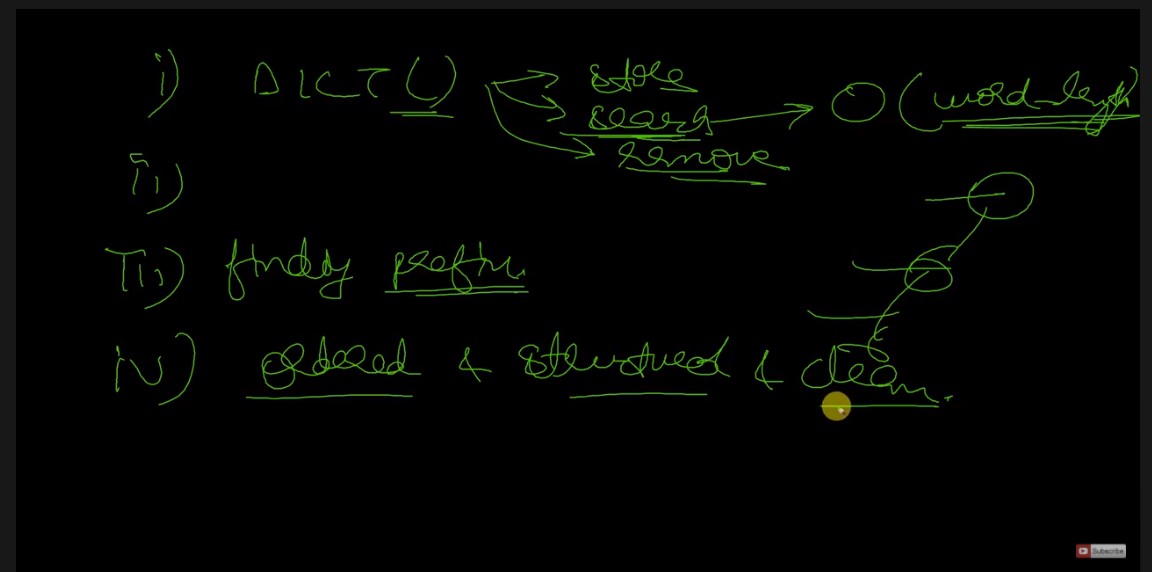 i) DICT() store
search → O(word-length)
remove
ii)
iii) finding prefix.
iv) ordered & structured & clean.
Subscribe